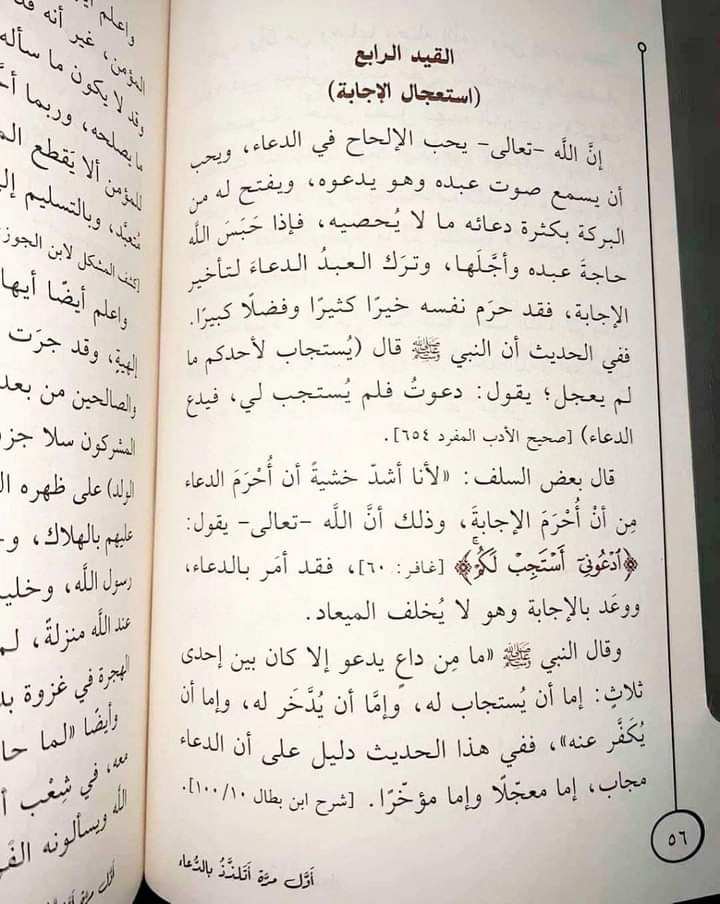 القيد الرابع
(استعجال الإجابة)
إنَّ اللَّه -تعالى- يحب الإلحاح في الدعاء، ويحب
أن يسمع صوت عبده وهو يدعوه، ويفتح له من
البركة بكثرة دعائه ما لا يُحصيه، فإذا حَبَسَ اللَّه
حاجةَ عبده وأجَّلَها، وترَك العبدُ الدعاءَ لتأخير
الإجابة، فقد حرَم نفسه خيرًا كثيرًا وفضلًا كبيرًا.
ففي الحديث أن النبي ﷺ قال (يُستجاب لأحدكم ما
لم يعجل؛ يقول: دعوتُ فلم يُستجب لي، فيدع
الدعاء) [صحيح الأدب المفرد ٦٥٤].
قال بعض السلف: «لأنا أشدّ خشيةً أن أُحْرَمَ الدعاء
مِن أنْ أُحْرَمَ الإجابةَ، وذلك أنَّ اللَّه -تعالى- يقول:
﴿ٱدْعُونِىٓ أَسْتَجِبْ لَكُمْ﴾ [غافر: ٦٠]، فقد أمَر بالدعاء،
ووعَد بالإجابة وهو لا يُخلف الميعاد.
وقال النبي ﷺ «ما مِن داعٍ يدعو إلا كان بين إحدى
ثلاثٍ: إما أن يُستجاب له، وإمَّا أن يُدَّخَر له، وإما أن
يُكَفَّر عنه»، ففي هذا الحديث دليل على أن الدعاء
مجاب، إما معجّلًا وإما مؤخّرًا. [شرح ابن بطال ١٠/١٠٠].
٥٦
أوَّل مرَّة أتلذَّذُ بالدُّعاء
واعلم أي
المؤمن، غير أنه قد
وقد لا يكون ما سأله
ما يصلحه، وربما
للمؤمن ألا يَقطع
مُتعبِّد، وبالتسليم
[كشف المشكل لابن الجوز
واعلم أيضًا أيها
إلهية، وقد جرَت
والصالحين من بعد
المشركون سلا جزو
الولد) على ظهره
عليهم بالهلاك،
رسول اللَّه، وخليـ
عند اللَّه منزلةً، لم
الهجرة في غزوة بد
وأيضًا «لما حا
معه، في شِعْب أ
اللَّه ويسألونه الفَر
أوَّل مرَّة أتلذ